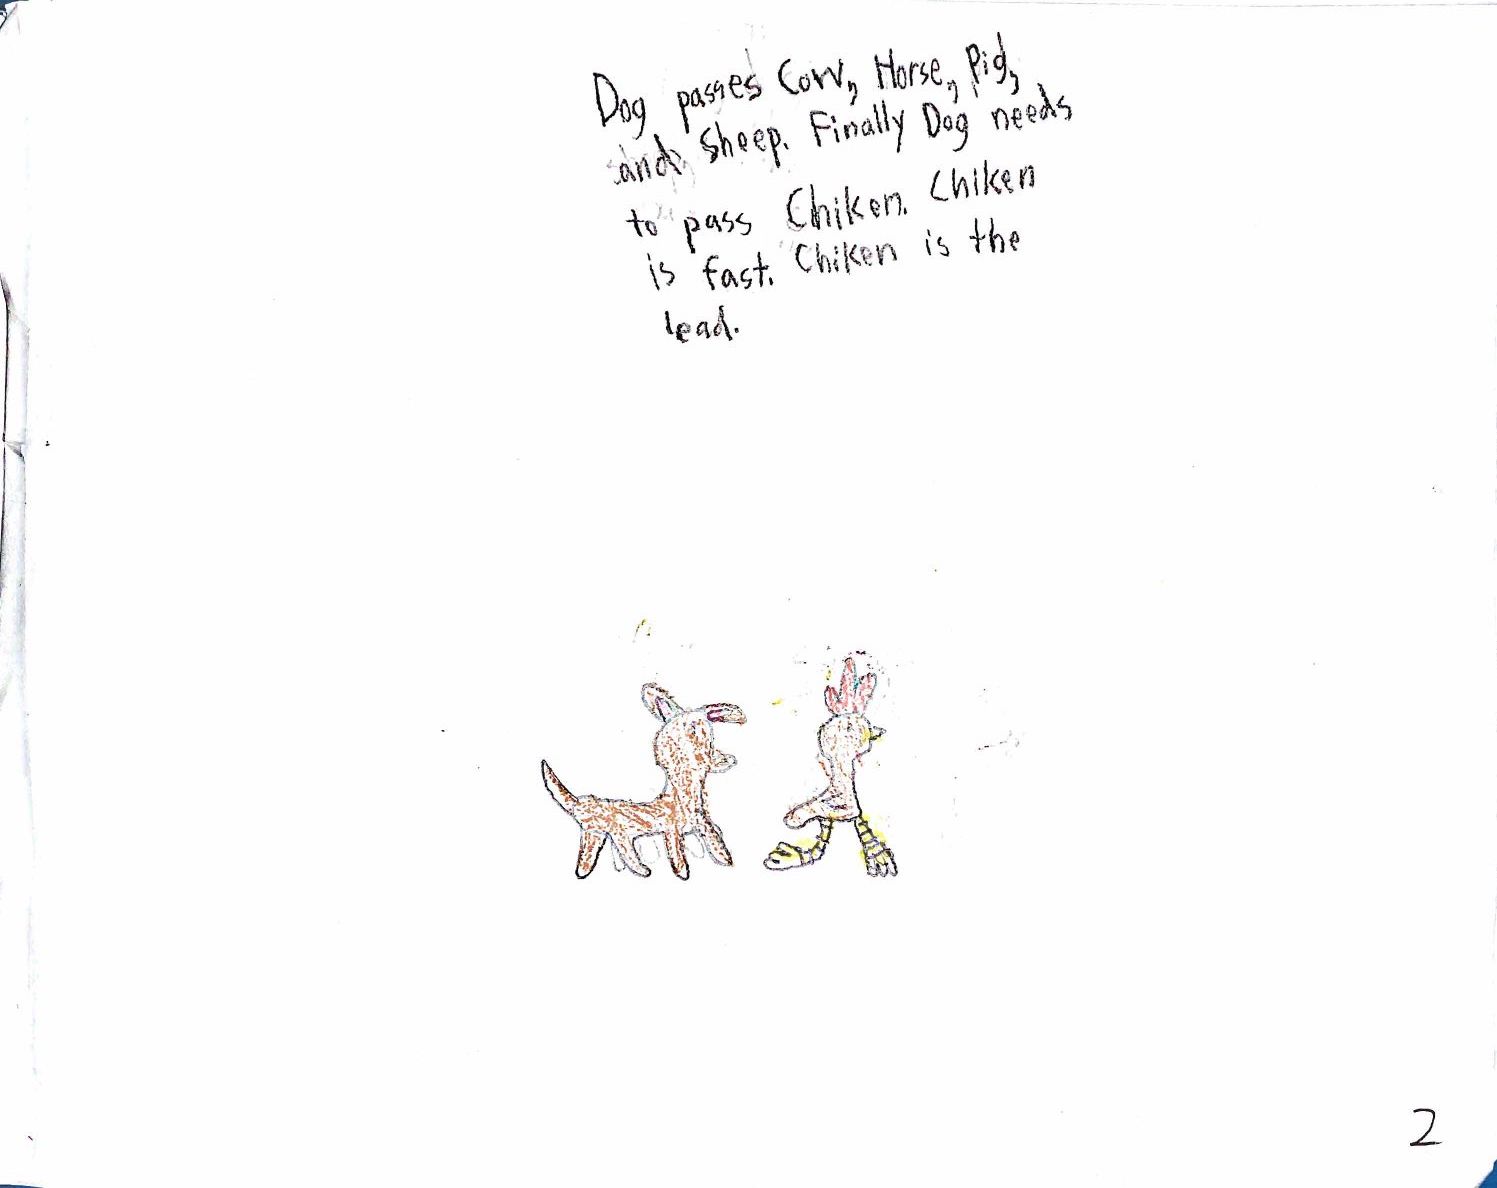 Dog passes Cow, Horse, Pig,
and Sheep. Finally Dog needs
to pass Chiken. Chiken
is fast. Chiken is the
lead.
2